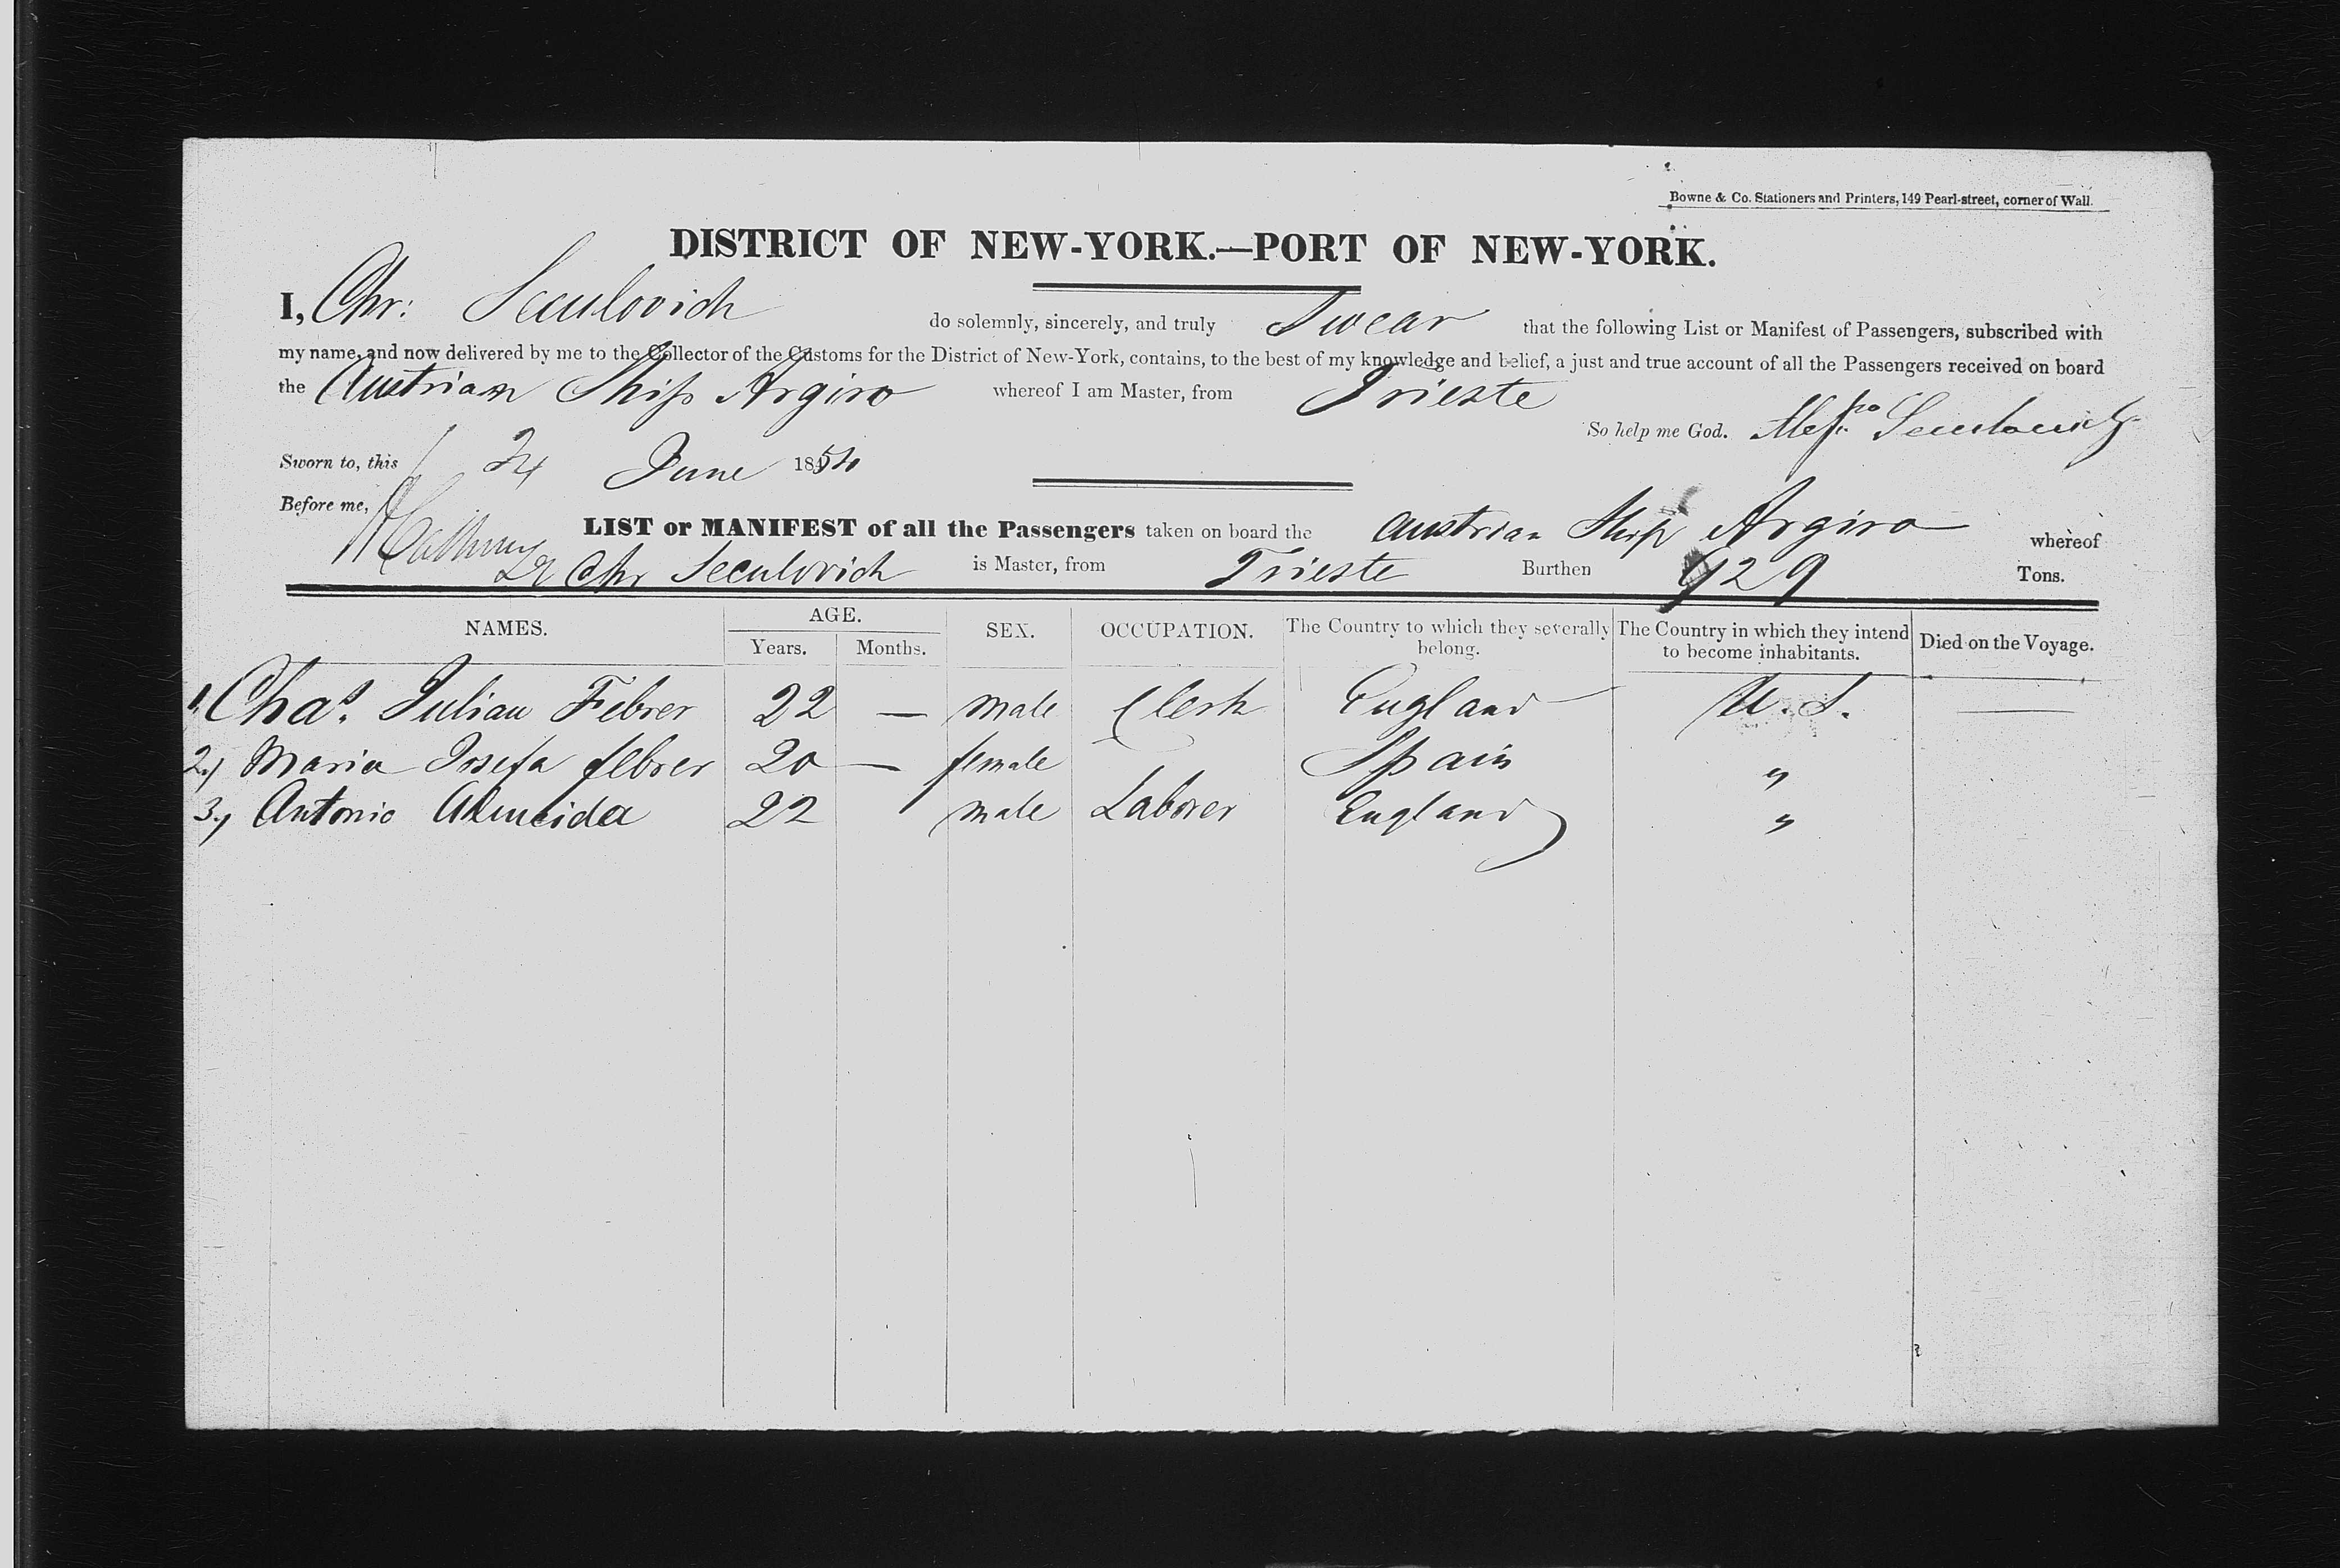 Bowne & Co. Stationers and Printers, 149 Pearl-street, corner of Wall.
DISTRICT OF NEW-YORK.—PORT OF NEW-YORK.
I, Chr: Seculovich do solemnly, sincerely, and truly Swear that the following List or Manifest of Passengers, subscribed with
my name, and now delivered by me to the Collector of the Customs for the District of New-York, contains, to the best of my knowledge and belief, a just and true account of all the Passengers received on board
the Austrian Ship Argiro whereof I am Master, from Trieste
So help me God. Seculovich
Sworn to, this 24 June 1854
Before me,
LIST or MANIFEST of all the Passengers taken on board the Austrian Ship Argiro whereof
Chr Seculovich is Master, from Trieste Burthen 929 Tons.
NAMES. AGE. SEX. OCCUPATION. The Country to which they severally belong. The Country in which they intend to become inhabitants. Died on the Voyage.
Years. Months.
1. Chas. Julian Febrer 22 — male Clerk England U.S. —
2.) Maria Josefa febrer 20 — female Spain "
3.) Antonio Almeida 22 male Laborer England "